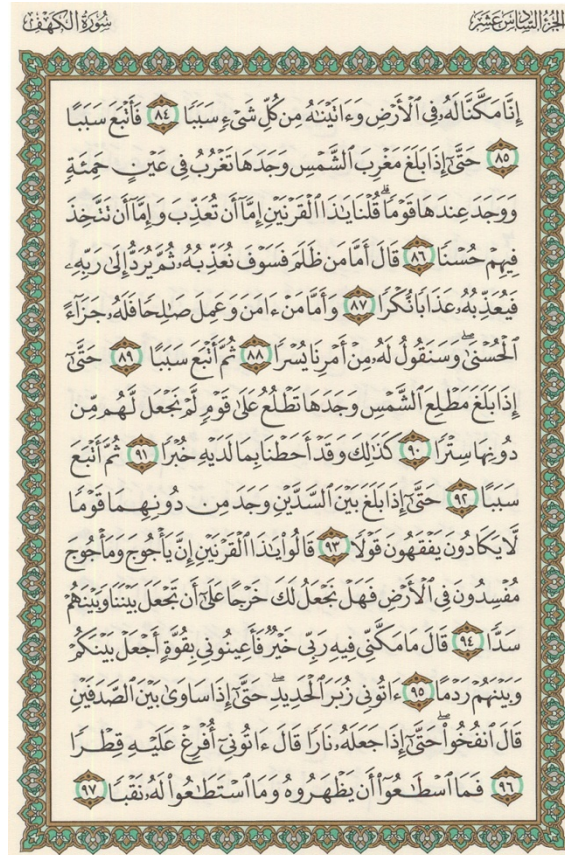 سُورَةُ الكَهْفِ
الجُزْءُ السَّادِسَ عَشَرَ
إِنَّا مَكَّنَّا لَهُۥ فِى ٱلْأَرْضِ وَءَاتَيْنَٰهُ مِن كُلِّ شَىْءٍ سَبَبًا ٨٤ فَأَتْبَعَ سَبَبًا
٨٥ حَتَّىٰٓ إِذَا بَلَغَ مَغْرِبَ ٱلشَّمْسِ وَجَدَهَا تَغْرُبُ فِى عَيْنٍ حَمِئَةٍ
وَوَجَدَ عِندَهَا قَوْمًا ۗ قُلْنَا يَٰذَا ٱلْقَرْنَيْنِ إِمَّآ أَن تُعَذِّبَ وَإِمَّآ أَن تَتَّخِذَ
فِيهِمْ حُسْنًا ٨٦ قَالَ أَمَّا مَن ظَلَمَ فَسَوْفَ نُعَذِّبُهُۥ ثُمَّ يُرَدُّ إِلَىٰ رَبِّهِۦ
فَيُعَذِّبُهُۥ عَذَابًا نُّكْرًا ٨٧ وَأَمَّا مَنْ ءَامَنَ وَعَمِلَ صَٰلِحًا فَلَهُۥ جَزَآءً
ٱلْحُسْنَىٰ ۖ وَسَنَقُولُ لَهُۥ مِنْ أَمْرِنَا يُسْرًا ٨٨ ثُمَّ أَتْبَعَ سَبَبًا ٨٩ حَتَّىٰٓ
إِذَا بَلَغَ مَطْلِعَ ٱلشَّمْسِ وَجَدَهَا تَطْلُعُ عَلَىٰ قَوْمٍ لَّمْ نَجْعَل لَّهُم مِّن
دُونِهَا سِتْرًا ٩٠ كَذَٰلِكَ وَقَدْ أَحَطْنَا بِمَا لَدَيْهِ خُبْرًا ٩١ ثُمَّ أَتْبَعَ
سَبَبًا ٩٢ حَتَّىٰٓ إِذَا بَلَغَ بَيْنَ ٱلسَّدَّيْنِ وَجَدَ مِن دُونِهِمَا قَوْمًا
لَّا يَكَادُونَ يَفْقَهُونَ قَوْلًا ٩٣ قَالُوا۟ يَٰذَا ٱلْقَرْنَيْنِ إِنَّ يَأْجُوجَ وَمَأْجُوجَ
مُفْسِدُونَ فِى ٱلْأَرْضِ فَهَلْ نَجْعَلُ لَكَ خَرْجًا عَلَىٰٓ أَن تَجْعَلَ بَيْنَنَا وَبَيْنَهُمْ
سَدًّا ٩٤ قَالَ مَا مَكَّنِّى فِيهِ رَبِّى خَيْرٌ فَأَعِينُونِى بِقُوَّةٍ أَجْعَلْ بَيْنَكُمْ
وَبَيْنَهُمْ رَدْمًا ٩٥ ءَاتُونِى زُبَرَ ٱلْحَدِيدِ ۖ حَتَّىٰٓ إِذَا سَاوَىٰ بَيْنَ ٱلصَّدَفَيْنِ
قَالَ ٱنفُخُوا۟ ۖ حَتَّىٰٓ إِذَا جَعَلَهُۥ نَارًا قَالَ ءَاتُونِىٓ أُفْرِغْ عَلَيْهِ قِطْرًا
٩٦ فَمَا ٱسْطَٰعُوٓا۟ أَن يَظْهَرُوهُ وَمَا ٱسْتَطَٰعُوا۟ لَهُۥ نَقْبًا ٩٧